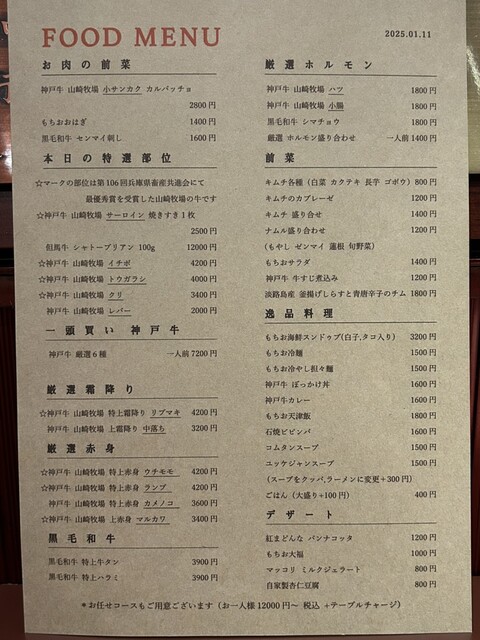 FOOD MENU
2025.01.11
お肉の前菜
神戸牛 山崎牧場 小サンカク カルパッチョ
2800円
もちおおはぎ 1400円
黒毛和牛 センマイ刺し 1600円
本日の特選部位
☆マークの部位は第106回兵庫県畜産共進会にて
最優秀賞を受賞した山崎牧場の牛です
☆神戸牛 山崎牧場 サーロイン 焼きすき1枚
2500円
但馬牛 シャトーブリアン 100g 12000円
☆神戸牛 山崎牧場 イチボ 4200円
☆神戸牛 山崎牧場 トウガラシ 4000円
☆神戸牛 山崎牧場 クリ 3400円
神戸牛 山崎牧場 レバー 2000円
一頭買い 神戸牛
神戸牛 厳選6種 一人前7200円
厳選霜降り
☆神戸牛 山崎牧場 特上霜降り リブマキ 4200円
神戸牛 山崎牧場 上霜降り 中落ち 3200円
厳選赤身
☆神戸牛 山崎牧場 特上赤身 ウチモモ 4200円
☆神戸牛 山崎牧場 特上赤身 ランプ 4200円
☆神戸牛 山崎牧場 特上赤身 カメノコ 3600円
☆神戸牛 山崎牧場 上赤身 マルカワ 3400円
黒毛和牛
黒毛和牛 特上牛タン 3900円
黒毛和牛 特上ハラミ 3900円
厳選ホルモン
神戸牛 山崎牧場 ハツ 1800円
神戸牛 山崎牧場 小腸 1800円
黒毛和牛 シマチョウ 1800円
厳選 ホルモン盛り合わせ 一人前1400円
前菜
キムチ各種（白菜 カクテキ 長芋 ゴボウ）800円
キムチのカプレーゼ 1200円
キムチ 盛り合せ 1400円
ナムル盛り合わせ 1200円
（もやし ゼンマイ 蓮根 旬野菜）
もちおサラダ 1400円
神戸牛 牛すじ煮込み 1200円
淡路島産 釜揚げしらすと青唐辛子のチム 1800円
逸品料理
もちお海鮮スンドゥブ(白子,タコ入り) 3200円
もちお冷麺 1500円
もちお冷やし担々麺 1500円
神戸牛 ぼっかけ丼 1600円
神戸牛カレー 1600円
もちお天津飯 1800円
石焼ビビンバ 1600円
コムタンスープ 1500円
ユッケジャンスープ 1500円
（スープをクッパ,ラーメンに変更+300円）
ごはん（大盛り+100円） 400円
デザート
紅まどんな パンナコッタ 1200円
もちお大福 1000円
マッコリ ミルクジェラート 800円
自家製杏仁豆腐 800円
*お任せコースもご用意ございます（お一人様12000円〜 税込 +テーブルチャージ）